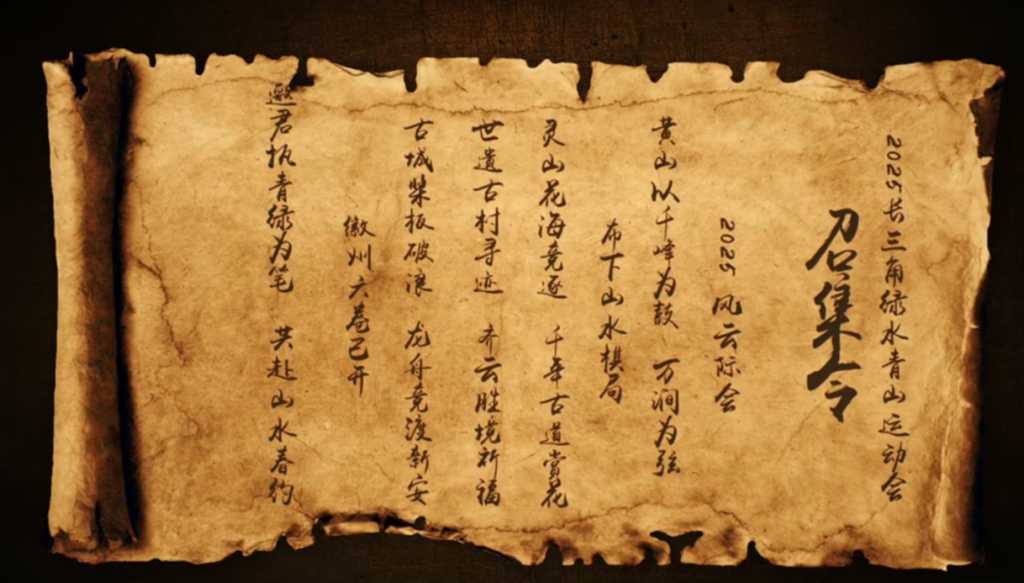 2025长三角绿水青山运动会
召集令
2025 风云际会
黄山以千峰为鼓 万涧为弦
布下山水棋局
灵山花海竞逐 千年古道赏花
世遗古村寻迹 齐云胜境祈福
古城桨板破浪 龙舟竞渡新安
徽州六卷已开
邀君执青绿为笔 共赴山水春约